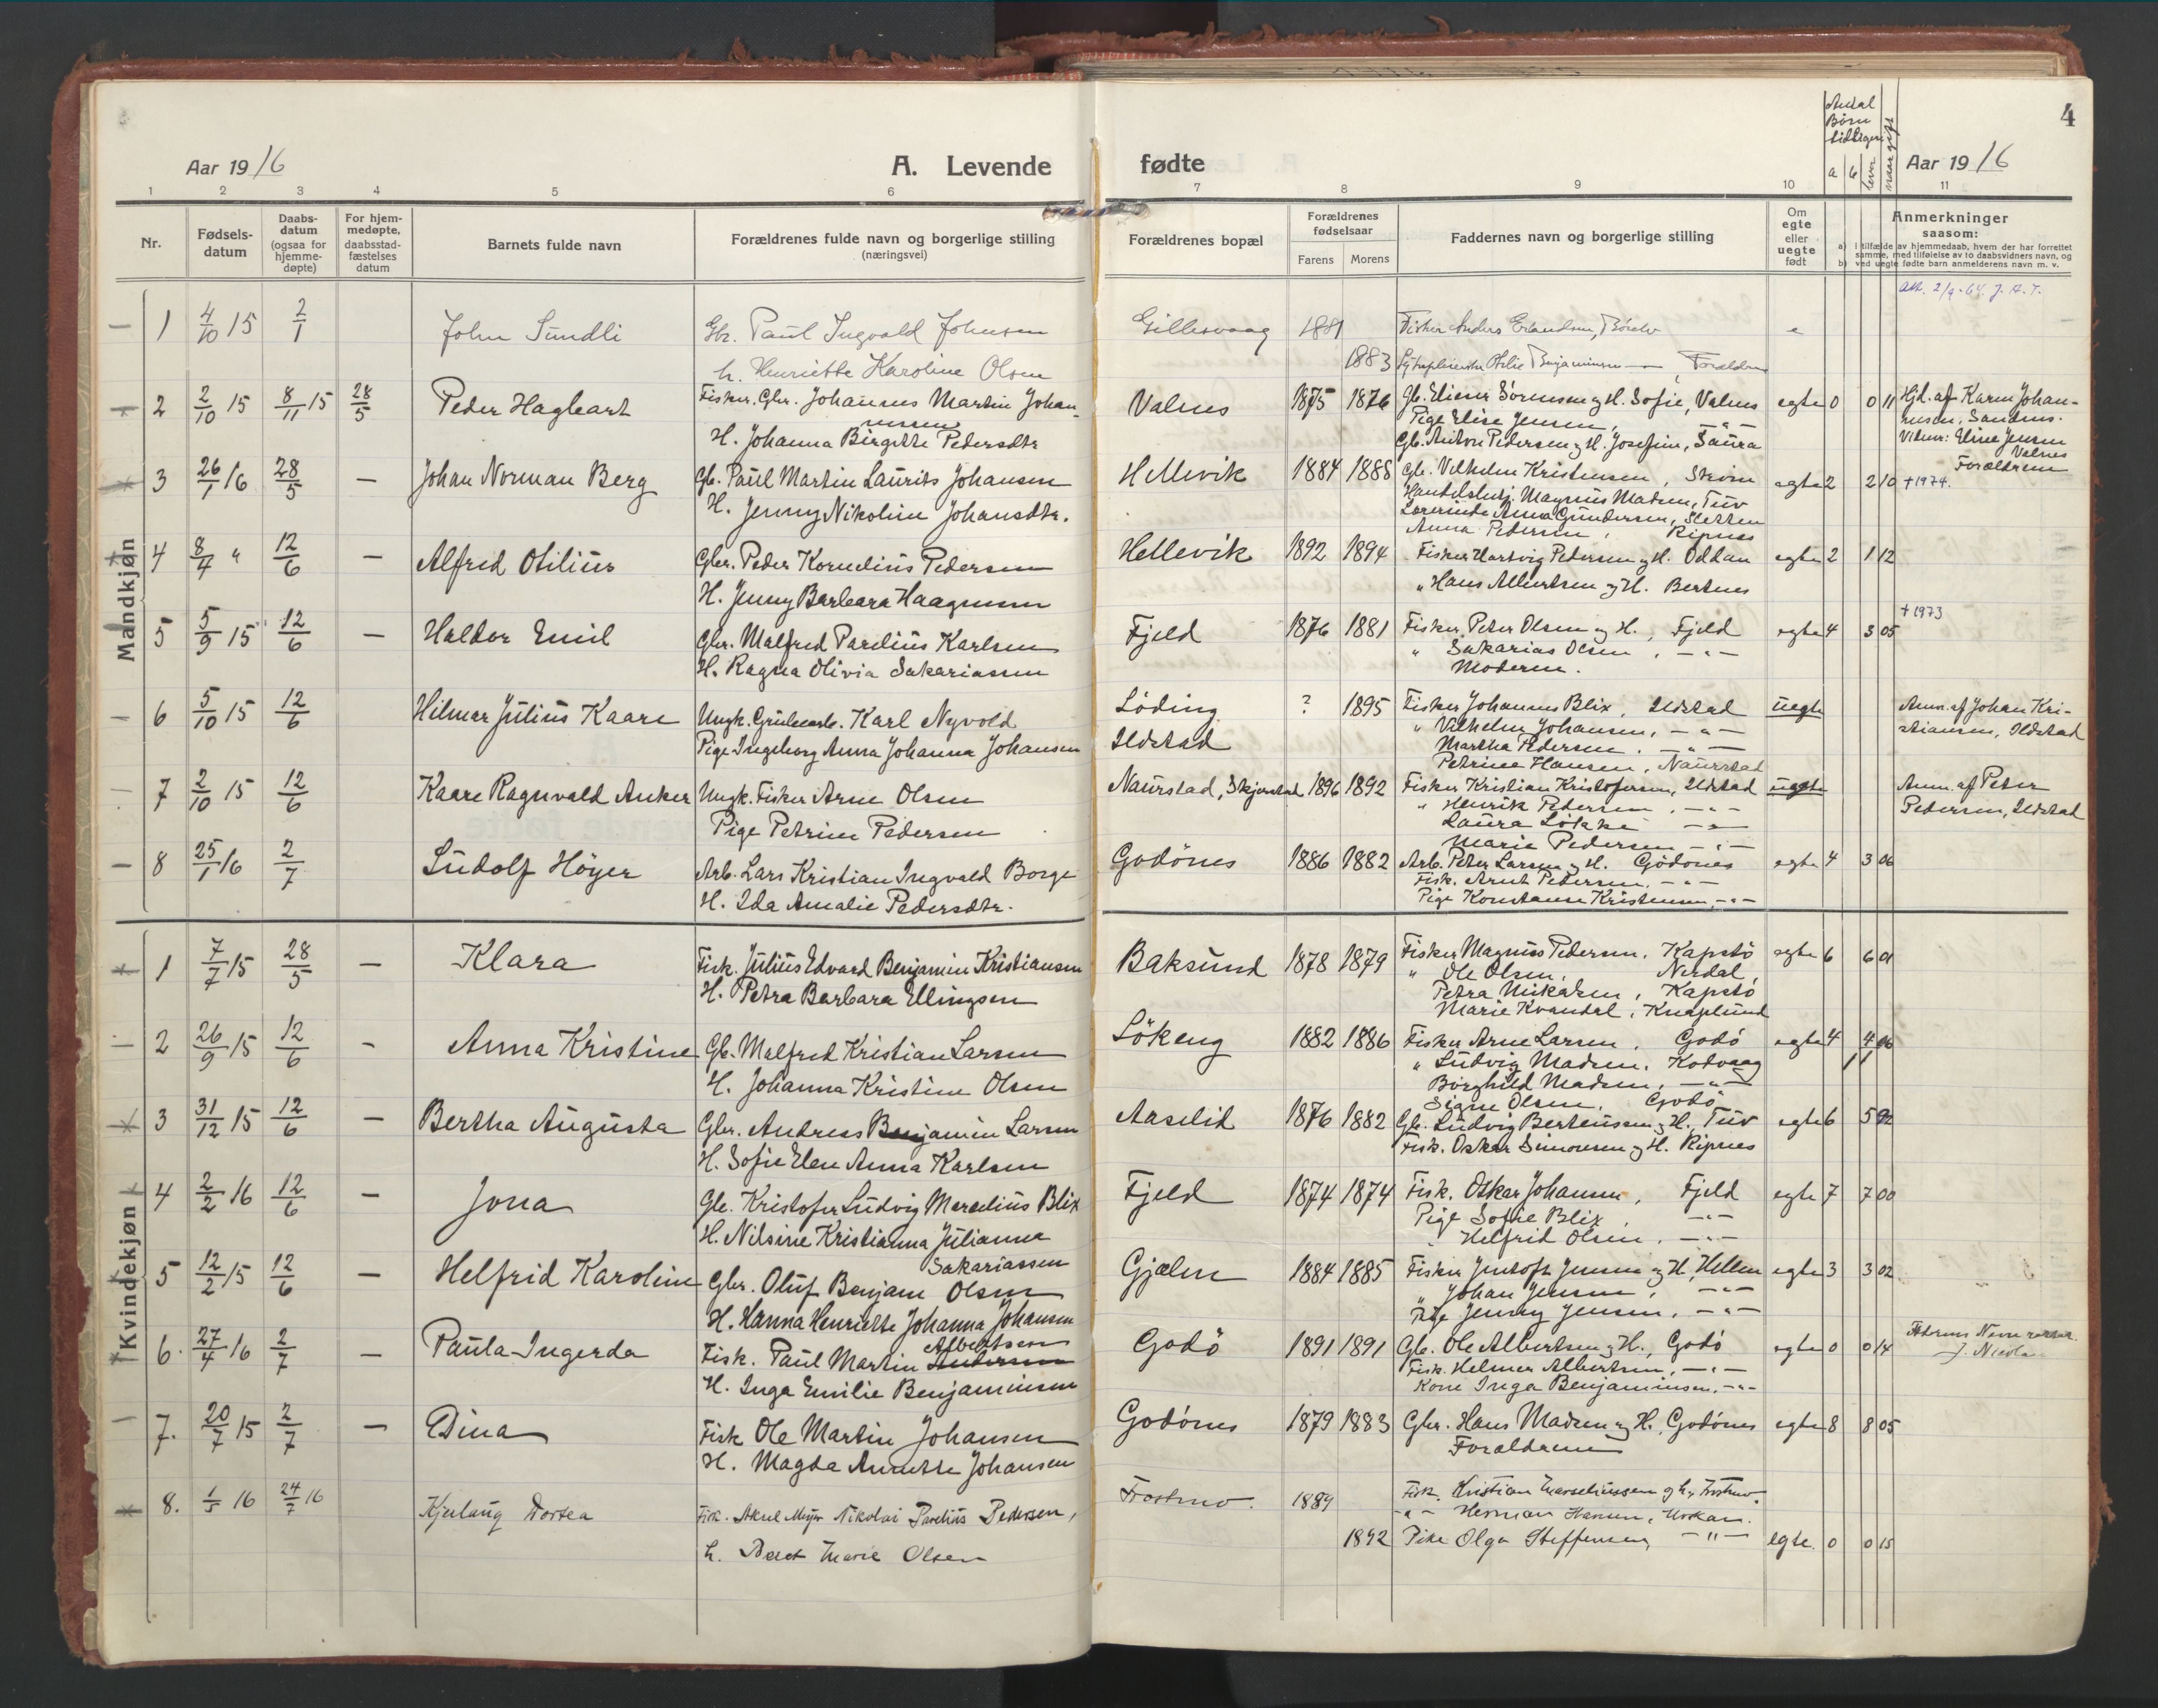 4
Antal Børn tidligere
a b lever naar gift
Aar 1916 A. Levende fødte Aar 1916
1 2 3 4 5 6 7 8 9 10 11
Nr.
Fødsels-datum
Daabs-datum (ogsaa for hjemme-døpte)
For hjem-medøpte, daabsstad-fæstelses datum
Barnets fulde navn
Forældrenes fulde navn og borgerlige stilling (næringsvei)
Forældrenes bopæl
Forældrenes fødselsaar
Farens Morens
Faddernes navn og borgerlige stilling
Om egte eller uegte født
Anmerkninger saasom:
a) i tilfælde av hjemmedaab, hvem der har forrettet samme, med tilføielse av to daabsvidners navn, og
b) ved uegte fødte barn anmelderens navn m. v.
Mandkjøn
Att. 2/9-64. J. A. T.
1 4/10 15 2/1 John Sundli Gbr. Paul Ingvald Johnsen Gillesvaag 1881 Fisker Anders Erlandsen, e
h. Henriette Karoline Olsen 1883 Benjaminsen Forældrene
2 2/10 15 8/11 15 28/5 Peder Hagbart Fisker, Gbr. Johannes Martin Johan- Valnes 1875 1876 Gb. Elieser Sörensen og H. Sofie, Valnes egte 0 0 11 Hjd. af Karen Johan-
nessen Pige Elise Jensen, -"- nesen, Sandnes.
H. Johanna Birgitte Pedersdtr Gb. Anton Pedersen og H. Josefine, Saura Vidner: Elise Jensen Valnes
Forældrene
3 26/1 16 28/5 — Johan Norman Berg Gb. Paul Martin Laurits Johansen Hellevik 1884 1888 Gb. Vilhelm Kristensen, Ström egte 2 2 10 † 1974.
H. Jenny Nikoline Johansdtr. Handelsbetj. Magnus Madsen, Tuv
Lærerinde Anna Gundersen, Sletten
Anna Pedersen, Ripnes
4 8/4 " 12/6 — Alfred Otilius Gbr. Peder Kornelius Pedersen Hellevik 1892 1894 Fisker Hartvig Pedersen og H. Oddan egte 2 1 12
H. Jenny Barbara Haagensen " Hans Albertsen og H. Bertnes
5 5/9 15 12/6 — Haldor Emil Gbr. Malfred Parelius Karlsen Fjeld 1876 1881 Fisker Peter Olsen og H., Fjeld egte 4 3 05 † 1973
H. Ragna Olivia Sakariassen " Sakarias Olsen, -"-
Moderen.
6 5/10 15 12/6 Hilmar Julius Kaare Ungk. Grubearb. Karl Nyvold Löding ? 1895 Fisker Johannes Blix, Ildstad uegte Anm. af Johan Kri-
Pige Ingeborg Anna Johanna Johansen Ildstad " Vilhelm Johansen, -"- stiansen, Ildstad
Martha Pedersen, -"-
Petrine Hansen, Naurstad
7 2/10 15 12/6 Kaare Ragnvald Anker Ungk. Fisker Arne Olsen Naurstad, Skjerstad 1896 1892 Fisker Kristian Kristofersen, Ildstad uegte Anm. af Peter
Pige Petrine Pedersen " Henrik Pedersen, -"- Pedersen, Ildstad
Laura Lökke -"-
Marie Pedersen -"-
8 25/1 16 2/7 Ludolf Höyer Arb. Lars Kristian Ingvald Borge Godönes 1886 1882 Arb. Peter Larsen og H. Godönes egte 4 3 06
H. Ida Amalie Pedersdtr. Fisk. Arnt Pedersen, -"-
Pige Konstanse Kristensen, -"-
Kvindekjøn
1 7/7 15 28/5 — Klara Fisk. Julius Edvard Benjamin Kristiansen Baksund 1878 1879 Fisker Magnus Pedersen, Kapstö egte 6 6 01
H. Petra Barbara Ellingsen " Ole Olsen, Nerdal,
Petra Mikalsen, Kapstö
Marie Kvandal, Knaplund
2 26/9 15 12/6 - Anna Kristine Gb. Malfred Kristian Larsen Lökeng 1882 1886 Fisker Arne Larsen, Godö egte 4 4 06
H. Johanna Kristine Olsen " Ludvig Madsen, Kodvaag
Borghild Madsen, -"-
Signe Olsen, Godö
3 31/12 15 12/6 — Bertha Augusta Gbr. Andreas Benjamin Larsen Aaselid 1876 1882 Gb. Ludvig Berteussen og H., Tuv egte 6 5 92
H. Sofie Elen Anna Karlsen Fisk. Oskar Simonsen og H. Ripnes
4 2/2 16 12/6 — Jona Gb. Kristofer Ludvig Marelius Blix Fjeld 1874 1874 Fisk. Oskar Johansen, Fjeld egte 7 7 00
H. Nilsine Kristianna Julianna Pige Sofie Blix, -"-
Sakariassen " Helfrid Olsen, -"-
5 12/2 15 12/6 — Helfrid Karoline Gbr. Oluf Benjam Olsen Gjælen 1884 1885 Fisker Jentoft Jensen og H., Hellen egte 3 3 02
H. Hanna Henriette Johanna Johansen " Johan Jensen, -"-
Pige Jenny Jensen, -"-
6. 27/4 16 2/7 — Paula Ingerda Fisk. Paul Martin Andersen Albertsen Godö 1891 1891 Gb. Ole Albertsen og H., Godö egte 0 0 14 Fadrens Navn rettet.
H. Inga Emilie Benjaminsen Fisk. Helmer Albertsen, -"- J. Nicola
Kone Inga Benjaminsen, -"-
7. 20/7 15 2/7 — Dina Fisk Ole Martin Johansen Godönes 1879 1883 Gbr. Hans Madsen og H., Godönes egte 8 8 05
H. Magda Annette Johansen Forældrene
8. 1/5 16 24/7 16 Kjerlaug Dortea Fisk. Aksel Meyer Nikolai Parelius Pedersen, Frostmo. 1889 Fisk. Kristian Marseliussen og h., Frostmo.
-"- Herman Hansen,
h. Beret Marie Olsen 1892 Pike Olga Steffensen, -"- egte. 0 0 15